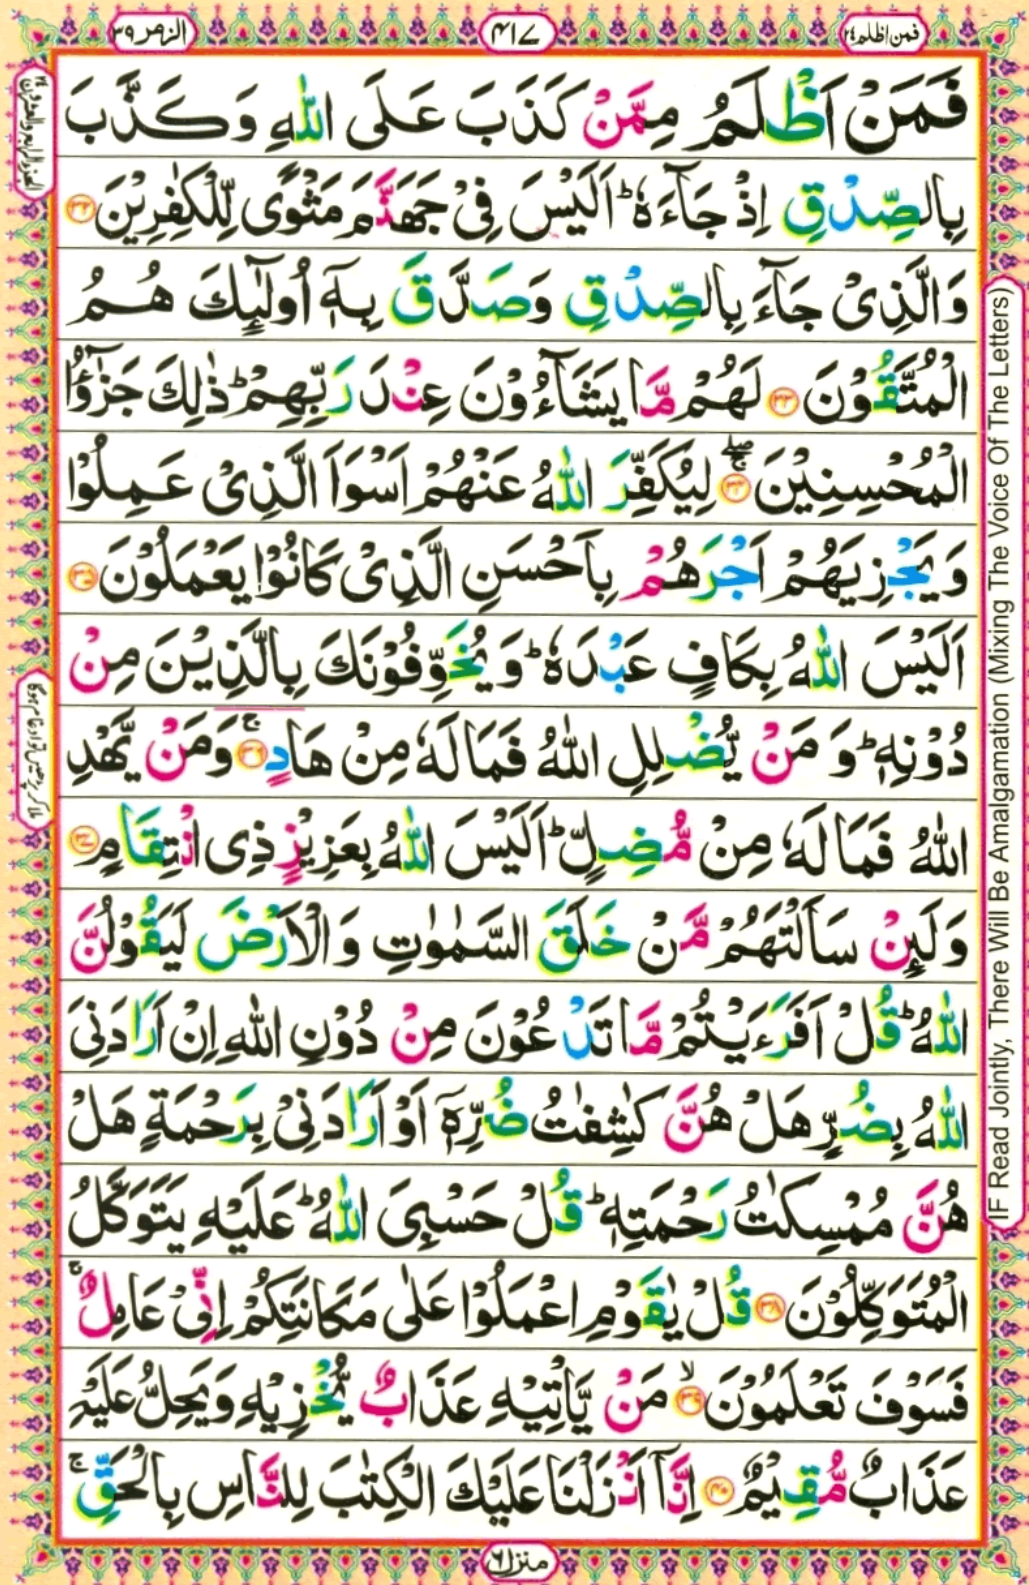 فمن اظلم ٢٤
٤١٧
الزمر ٣٩
فَمَنْ اَظْلَمُ مِمَّنْ كَذَبَ عَلَى اللّٰهِ وَكَذَّبَ
بِالصِّدْقِ اِذْ جَآءَهٗ ؕ اَلَيْسَ فِيْ جَهَنَّمَ مَثْوًى لِّلْكٰفِرِيْنَ ﴿۳۲﴾
وَالَّذِيْ جَآءَ بِالصِّدْقِ وَصَدَّقَ بِهٖۤ اُولٰٓئِكَ هُمُ
الْمُتَّقُوْنَ ﴿۳۳﴾ لَهُمْ مَّا يَشَآءُوْنَ عِنْدَ رَبِّهِمْ ؕ ذٰلِكَ جَزٰٓؤُا
الْمُحْسِنِيْنَ ﴿۳۴﴾ ۚۖ لِيُكَفِّرَ اللّٰهُ عَنْهُمْ اَسْوَاَ الَّذِيْ عَمِلُوْا
وَيَجْزِيَهُمْ اَجْرَهُمْ بِاَحْسَنِ الَّذِيْ كَانُوْا يَعْمَلُوْنَ ﴿۳۵﴾
اَلَيْسَ اللّٰهُ بِكَافٍ عَبْدَهٗ ؕ وَيُخَوِّفُوْنَكَ بِالَّذِيْنَ مِنْ
دُوْنِهٖ ؕ وَمَنْ يُّضْلِلِ اللّٰهُ فَمَا لَهٗ مِنْ هَادٍ ﴿۳۶﴾ ۚ وَمَنْ يَّهْدِ
اللّٰهُ فَمَا لَهٗ مِنْ مُّضِلٍّ ؕ اَلَيْسَ اللّٰهُ بِعَزِيْزٍ ذِى انْتِقَامٍ ﴿۳۷﴾
وَلَئِنْ سَاَلْتَهُمْ مَّنْ خَلَقَ السَّمٰوٰتِ وَالْاَرْضَ لَيَقُوْلُنَّ
اللّٰهُ ؕ قُلْ اَفَرَءَيْتُمْ مَّا تَدْعُوْنَ مِنْ دُوْنِ اللّٰهِ اِنْ اَرَادَنِيَ
اللّٰهُ بِضُرٍّ هَلْ هُنَّ كٰشِفٰتُ ضُرِّهٖۤ اَوْ اَرَادَنِيْ بِرَحْمَةٍ هَلْ
هُنَّ مُمْسِكٰتُ رَحْمَتِهٖ ؕ قُلْ حَسْبِيَ اللّٰهُ ؕ عَلَيْهِ يَتَوَكَّلُ
الْمُتَوَكِّلُوْنَ ﴿۳۸﴾ قُلْ يٰقَوْمِ اعْمَلُوْا عَلٰى مَكَانَتِكُمْ اِنِّيْ عَامِلٌ ۚ
فَسَوْفَ تَعْلَمُوْنَ ﴿۳۹﴾ ۙ مَنْ يَّاْتِيْهِ عَذَابٌ يُّخْزِيْهِ وَيَحِلُّ عَلَيْهِ
عَذَابٌ مُّقِيْمٌ ﴿۴۰﴾ اِنَّاۤ اَنْزَلْنَا عَلَيْكَ الْكِتٰبَ لِلنَّاسِ بِالْحَقِّ ۚ
منزل ٦
IF Read Jointly, There Will Be Amalgamation (Mixing The Voice Of The Letters)
ملا کر پڑھیں تو ادغام ہوگا